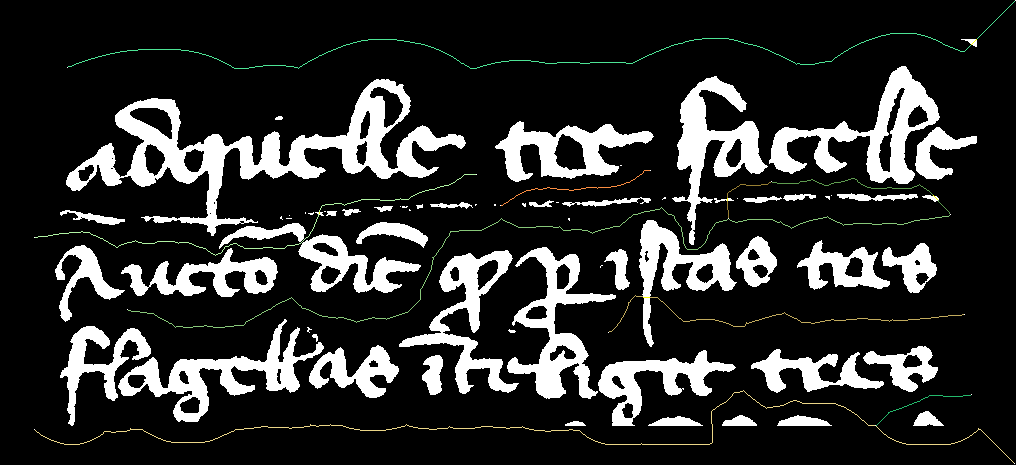 adquielle tre facelle
Aucto dic qp p istas tres
flagellas itelligit tres